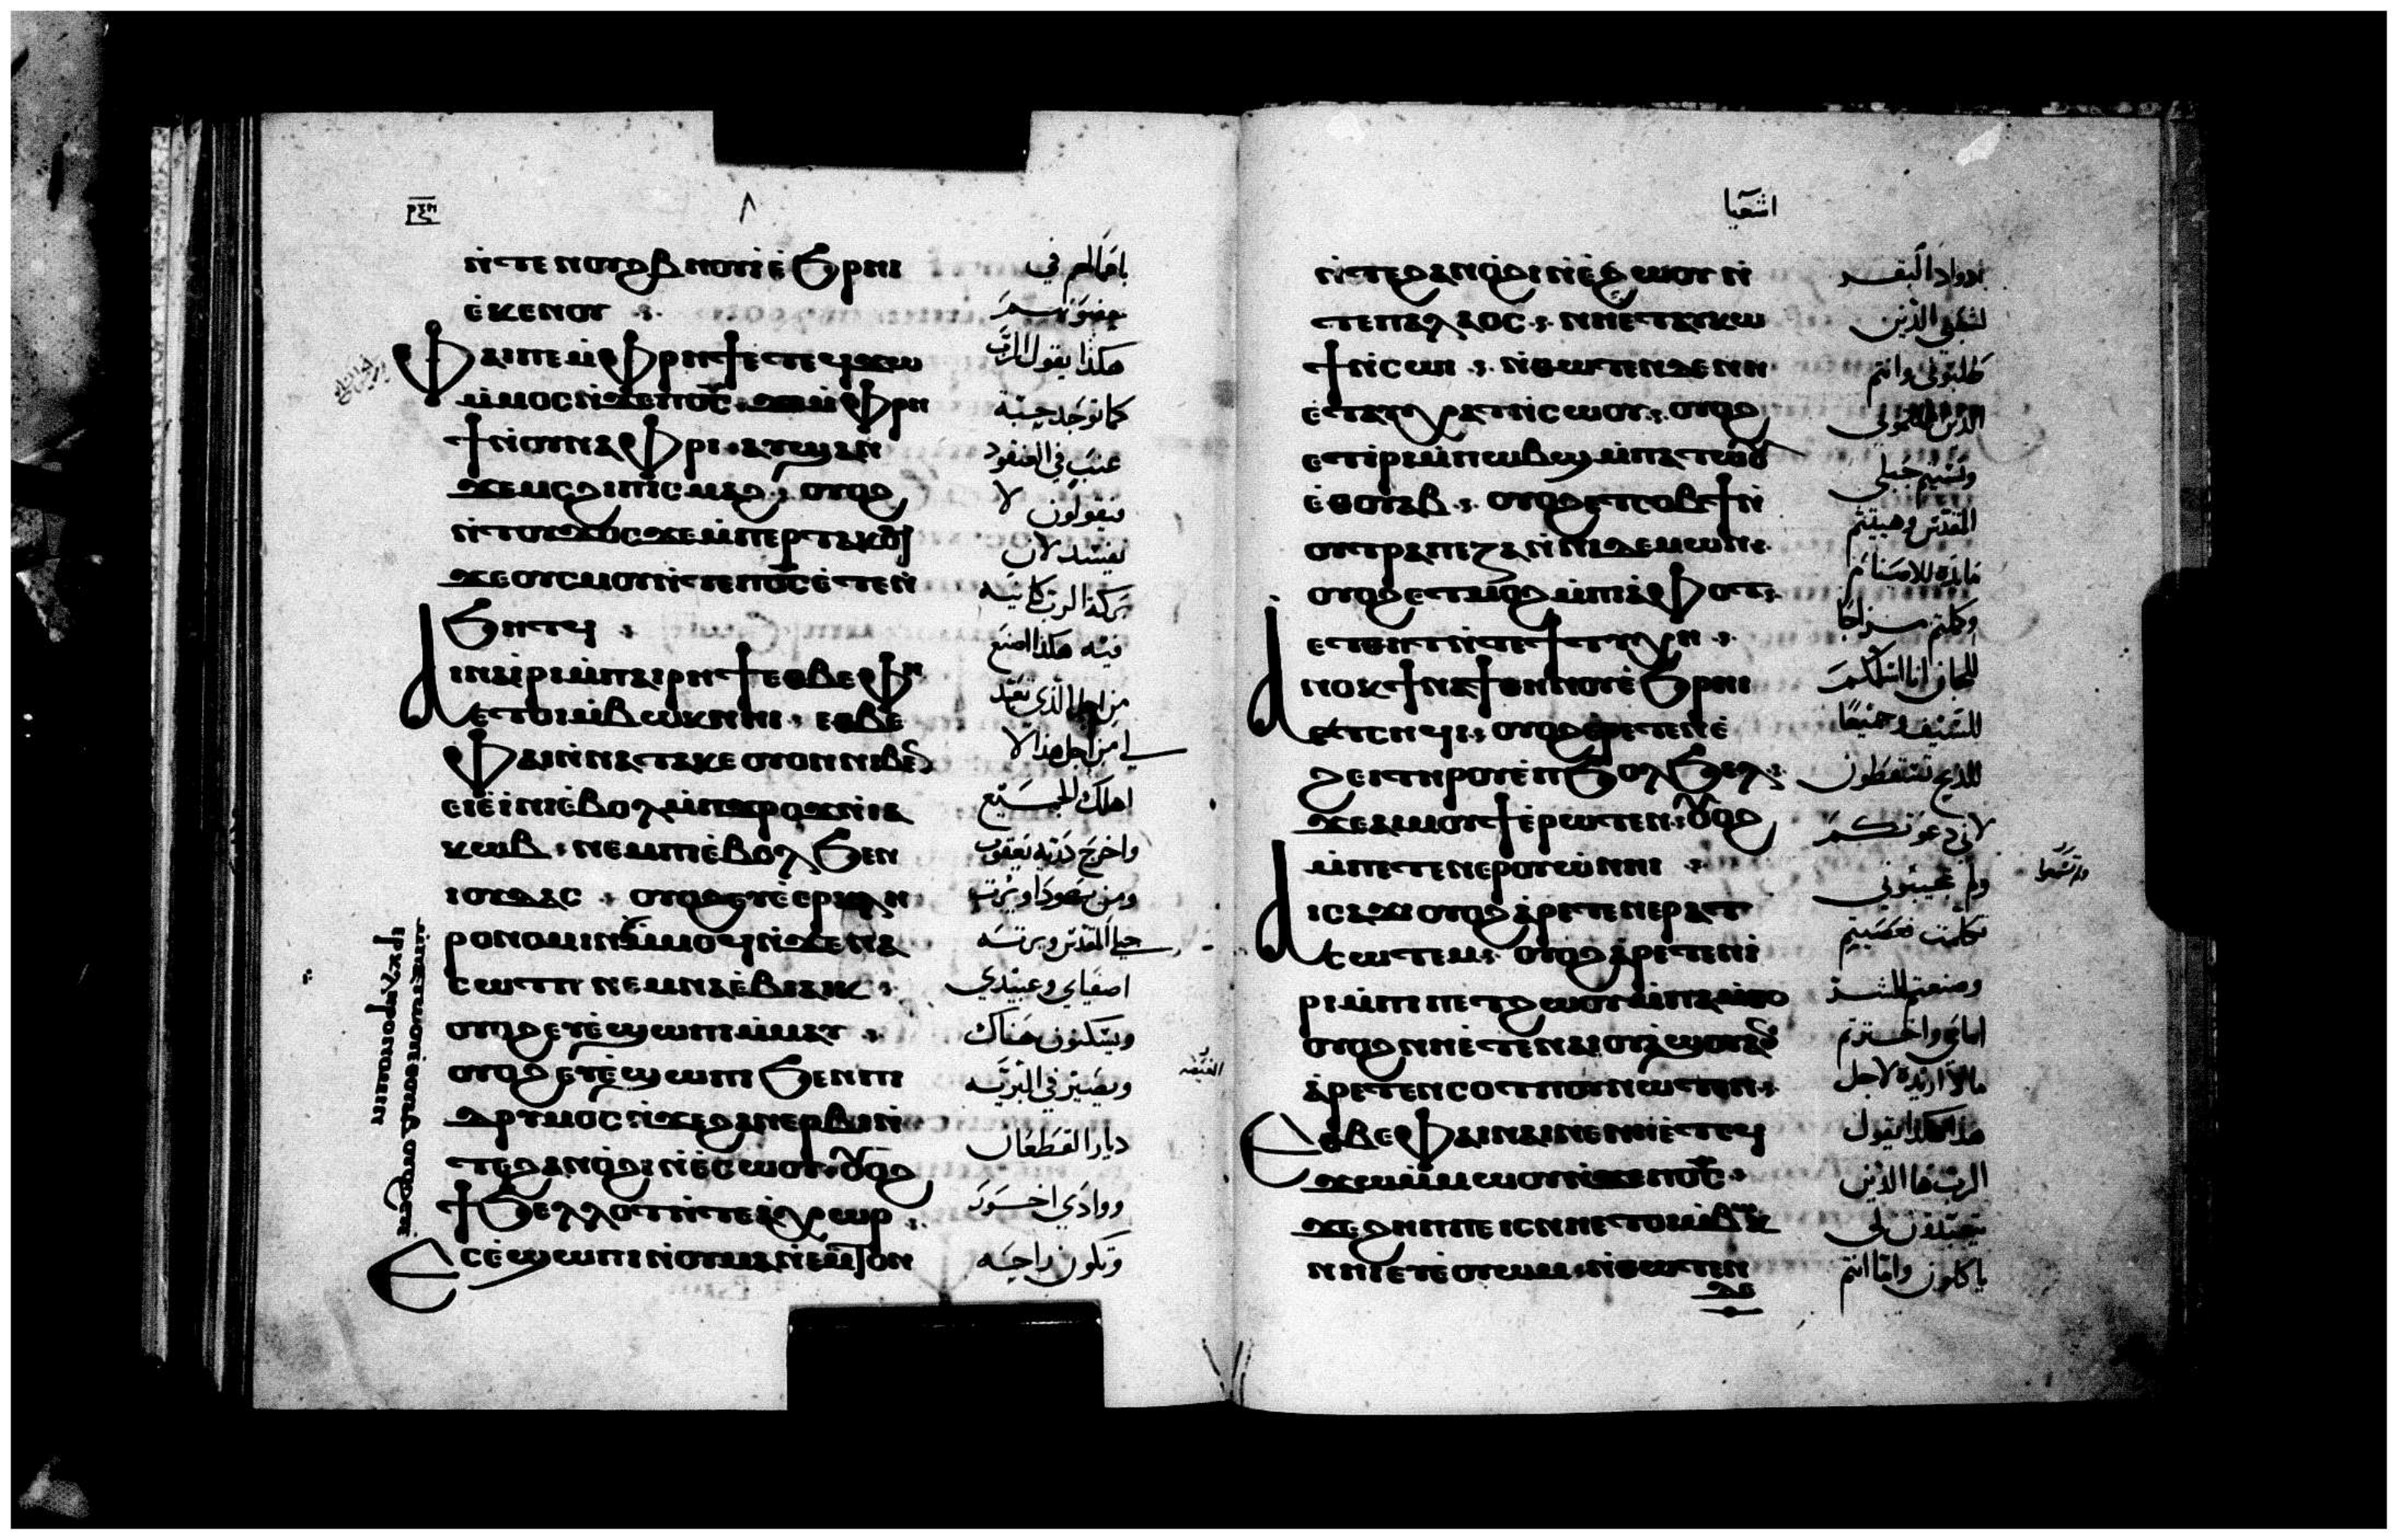 ⲣⲝⲏ
ⲛ̀ⲧⲉ ⲛⲟⲩϩⲃⲏⲟⲩⲓ ⲉ̀ϧⲣⲏⲓ
ⲉ̀ⲕⲉⲛⲟⲩ
ⲫⲁⲓ ⲡⲉ ⲙ̀ⲫⲣⲏϯ ⲉⲧⲉϥϫⲱ
ⲙ̀ⲙⲟⲥ ⲛ̀ϫⲉ ⲡⲟ̅ⲥ̅ ϫⲉ ⲙ̀ⲫⲣⲏ
ϯ ⲛ̀ⲟⲩⲛⲁⲫⲣⲓ ⲁⲩϣⲁⲛ
ϫⲉⲙⲥ ϩⲓ ⲡⲓⲥⲙⲁϩ ⲟⲩⲟϩ
ⲛ̀ⲧⲟⲩϫⲟⲥ ϫⲉ ⲙ̀ⲡⲉⲣⲧⲁⲕⲟϥ
ϫⲉ ⲟⲩⲥⲙⲟⲩ ⲛ̀ⲧⲉ ⲡⲟ̅ⲥ̅ ⲉ̀ⲧⲉⲛ
ϧⲏⲧϥ
ⲁⲓⲛⲁⲓⲣⲓ ⲙ̀ⲡⲁⲓⲣⲏϯ ⲉⲑⲃⲉ ⲫⲏ
ⲉⲧⲟⲓ ⲙ̀ⲃⲱⲕ ⲛⲏⲓ ⲉⲑⲃⲉ
ⲫⲁⲓ ⲛ̀ⲛⲁⲧⲁⲕⲉ ⲟⲩⲟⲛ ⲛⲓⲃⲉⲛ
ⲉⲓⲉ̀ⲓⲛⲓ ⲉ̀ⲃⲟⲗ ⲙ̀ⲡϫⲣⲟϫ ⲛ̀ⲓⲁ
ⲕⲱⲃ ⲛⲉⲙ ⲡⲓⲉ̀ⲃⲟⲗ ϧⲉⲛ
ⲓⲟⲩⲇⲁⲥ ⲟⲩⲟϩ ⲉⲩⲉ̀ⲉⲣⲕⲗⲏ
ⲣⲟⲛⲟⲙⲓⲛ ⲙ̀ⲙⲟϥ ⲛ̀ϫⲉ ⲛⲁ
ⲥⲱⲧⲡ ⲛⲉⲙ ⲛⲁⲉ̀ⲃⲓⲁⲓⲕ
ⲟⲩⲟϩ ⲉⲩⲉ̀ϣⲱⲡⲓ ⲙ̀ⲙⲁⲩ
ⲟⲩⲟϩ ⲉⲩⲉ̀ϣⲱⲡⲓ ϧⲉⲛ ⲡⲓ
ⲇⲣⲩⲙⲟⲥ ⲛ̀ϫⲉ ϩⲁⲛⲉⲣⲃⲓ ⲛ̀
ⲧⲉ ϩⲁⲛⲟ̀ϩⲓ ⲛ̀ⲉ̀ⲥⲱⲟⲩ ⲟⲩⲟϩ
ϯϧⲉⲗⲗⲟⲧ ⲛ̀ⲧⲉ ⲁ̀ⲭⲱⲣ
ⲉⲥⲉ̀ϣⲱⲡⲓ ⲛ̀ⲟⲩⲙⲁⲛ̀ⲉⲙⲧⲟⲛ
باعمالهم في
هكذا يقول الرب
كما توجد حبة
عنب في العنقود
فيقولون لا
تفسده لان
بركة الرب كاينه
فيه هكذا اصنع
من اجل الذي تعبد
لي من اجل هذا لا
اهلك الجميع
واخرج ذرية يعقوب
ومن يهودا ويرث
جبل المقدس ويرثه
اصفياي وعبيدي
ويسكنون هناك
ويصير في البريه
ديار القطعان
ووادي اخور
وتكون راحه
اشعيا
ⲛ̀ⲧⲉ ϩⲁⲛⲟ̀ϩⲓ ⲛ̀ⲉ̀ϩⲱⲟⲩ ⲛ̀
ⲧⲉ ⲡⲁⲗⲁⲟⲥ ⲛⲏⲉⲧⲁⲩⲕⲱ
ϯ ⲛ̀ⲥⲱⲓ ⲛ̀ⲑⲱⲧⲉⲛ ⲇⲉ ⲛⲏ
ⲉ̀ⲧⲁⲩⲭⲁⲧ ⲛ̀ⲥⲱⲟⲩ ⲟⲩⲟϩ
ⲉⲧⲓⲣⲓ ⲙ̀ⲡⲱⲃϣ ⲙ̀ⲡⲁⲧⲱⲟⲩ
ⲉ̀ⲑⲟⲩⲁⲃ ⲟⲩⲟϩ ⲉⲧⲥⲟⲃϯ ⲛ̀
ⲟⲩⲧⲣⲁⲡⲉⲍⲁ ⲛ̀ⲛⲓⲇⲉⲙⲱⲛ
ⲟⲩⲟϩ ⲉⲧⲙⲟϩ ⲙ̀ⲡⲓⲁ̀ⲫⲟⲧ
ⲉⲧⲑⲏⲧ ⲛ̀ⲧⲉ ϯⲧⲩⲭⲏ
ⲁⲛⲟⲕ ϯⲛⲁϯ ⲑⲏⲛⲟⲩ ⲉ̀ϧⲣⲏⲓ
ⲉ̀ⲧⲥⲏϥⲓ ⲟⲩⲟϩ ⲉⲣⲉⲧⲉⲛⲉ̀
ϩⲉⲓ ⲧⲏⲣⲟⲩ ⲉ̀ⲡϧⲟⲗϧⲉⲗ
ϫⲉ ⲁⲓⲙⲟⲩϯ ⲉ̀ⲣⲱⲧⲉⲛ ⲟⲩⲟϩ
ⲙ̀ⲡⲉⲧⲉⲛⲉⲣⲟⲩⲱ̀ ⲛⲏⲓ
ⲁⲓⲥⲁϫⲓ ⲟⲩⲟϩ ⲁ̀ⲣⲉⲧⲉⲛⲉⲣⲁⲧ
ⲥⲱⲧⲉⲙ ⲟⲩⲟϩ ⲁ̀ⲣⲉⲧⲉⲛⲓ̀
ⲣⲓ ⲙ̀ⲡⲓⲡⲉⲧϩⲱⲟⲩ ⲙ̀ⲡⲁⲙ̀ⲑⲟ
ⲟⲩⲟϩ ⲛⲏⲉ̀ⲧⲉ ⲛⲁⲓⲟⲩⲁϣⲟⲩ ⲁⲛ
ⲁ̀ⲣⲉⲧⲉⲛⲥⲟⲧⲡⲟⲩ ⲛⲱⲧⲉⲛ
ⲉⲑⲃⲉ ⲫⲁⲓ ⲛⲁⲓ ⲛⲉ ⲛⲏⲉ̀ⲧⲉϥ
ϫⲱ ⲙ̀ⲙⲱⲟⲩ ⲛ̀ϫⲉ ⲡⲟ̅ⲥ̅
ϫⲉ ϩⲏⲡⲡⲉ ⲓⲥ ⲛⲏⲉⲧⲟⲓ ⲙ̀ⲃⲱⲕ
ⲛⲏⲓ ⲉⲩⲉ̀ⲟⲩⲱⲙ ⲛ̀ⲑⲱⲧⲉⲛ
ⲇⲉ
لشعبي الذين
طلبوني وانتم
ونسيتم جبلي
المقدس وهييتم
مايده للاصنام
للسيف وجميعا
للذبح تسقطون
لاني دعوتكم
ولم تجيبوني
تكلمت فعصيتم
وصنعتم الشر
امامي واخترتم
ما لا اريده لاجل
هذا هكذا يقول
الرب ها الذين
يتعبدون لي
ياكلون واما انتم